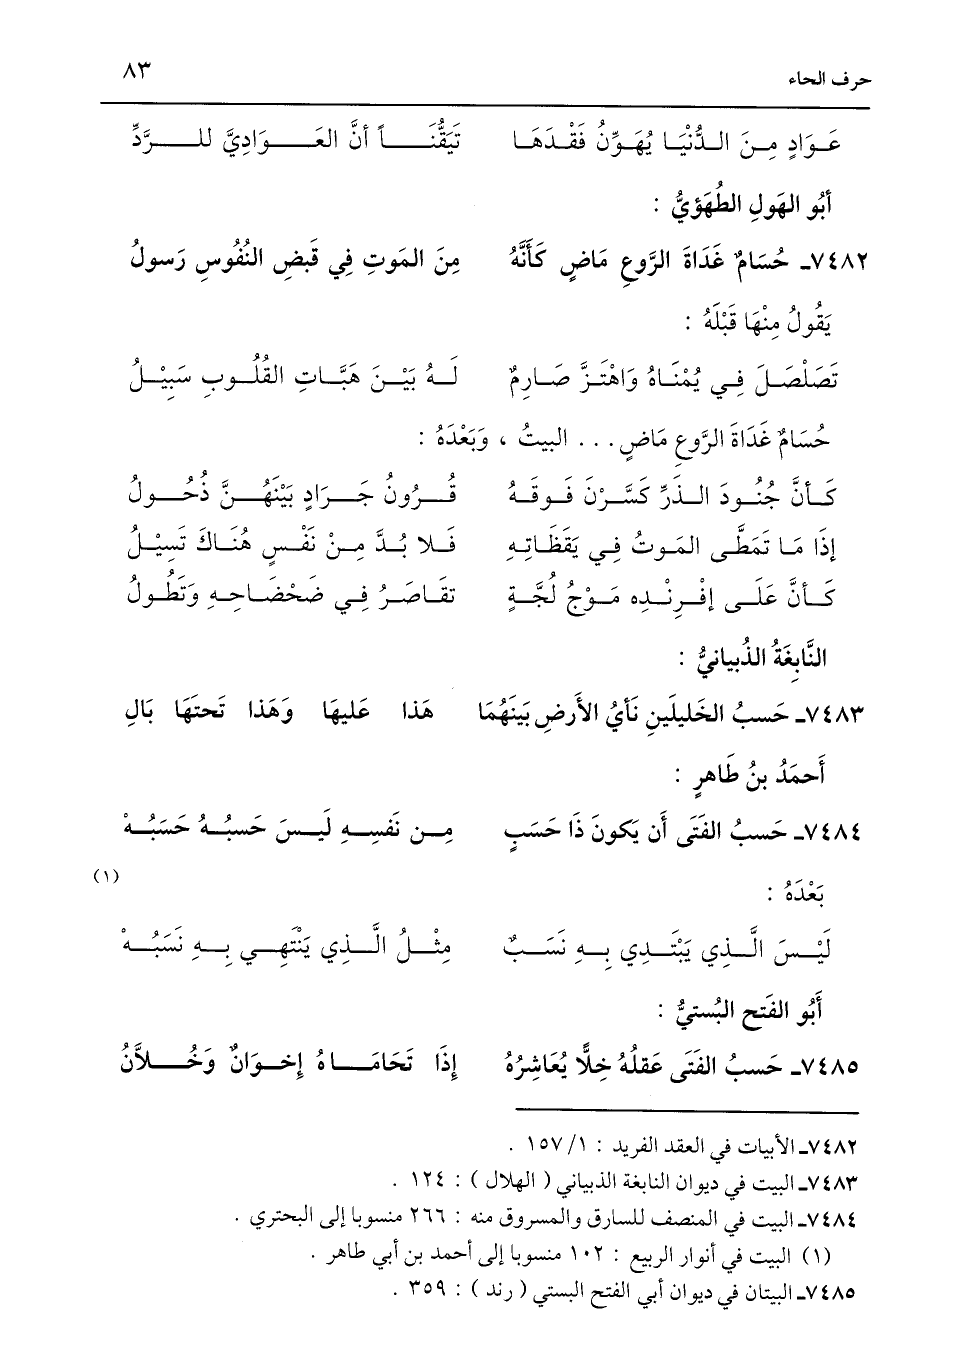 حرف الحاء ٨٣
عَوَادٍ مِنَ الدُّنْيَا يُهَوِّنُ فَقْدَهَا تَيَقُّنَاً أنَّ العَوَادِيَّ للرَّدِّ
أبُو الهَولِ الطُهَوُيُّ :
٧٤٨٢ـ حُسَامٌ غَدَاةَ الرَّوعِ مَاضٍ كَأَنَّهُ مِنَ المَوتِ فِي قَبضِ النُفُوسِ رَسولُ
يَقُولُ مِنْهَا قَبْلَهُ :
تَصَلْصَلَ فِي يُمْنَاهُ وَاهْتَزَّ صَارِمٌ لَهُ بَيْنَ هَبَّاتِ القُلُوبِ سَبِيْلُ
حُسَامٌ غَدَاةَ الرَّوعِ مَاضٍ . . . البيتُ ، وَبَعْدَهُ :
كَأنَّ جُنُودَ الذَرِّ كَسَّرْنَ فَوقَهُ قُرُونُ جَرَادٍ بَيْنَهُنَّ ذُحُولُ
إذَا مَا تَمَطَّى المَوتُ فِي يَقَظَاتِهِ فَلا بُدَّ مِنْ نَفْسٍ هُنَاكَ تَسِيْلُ
كَأنَّ عَلَى إفْرِنْدِه مَوْجُ لُجَّةٍ تقَاصَرُ فِي ضَحْضَاحِهِ وَتَطُولُ
النَّابِغَةُ الذُبيانيُّ :
٧٤٨٣ـ حَسبُ الخَليلَينِ نَأيُ الأَرضِ بَينَهُمَا هَذا عَليهَا وَهَذا تَحتَهَا بَالِ
أَحمَدُ بنُ طَاهرٍ :
٧٤٨٤ـ حَسبُ الفَتَى أن يَكونَ ذَا حَسَبٍ مِن نَفسِهِ لَيسَ حَسبُهُ حَسَبُهْ
(١)
بَعْدَهُ :
لَيْسَ الَّذِي يَبْتَدِي بِهِ نَسَبٌ مِثْلُ الَّذِي يَنْتَهِي بِهِ نَسَبُهْ
أَبُو الفَتح البُستيُّ :
٧٤٨٥ـ حَسبُ الفَتَى عَقلُهُ خِلًّا يُعَاشِرُهُ إِذَا تَحَامَاهُ إخوَانٌ وَخُلاَّنُ
٧٤٨٢ـ الأبيات في العقد الفريد : ١/ ١٥٧ .
٧٤٨٣ـ البيت في ديوان النابغة الذبياني ( الهلال ) : ١٢٤ .
٧٤٨٤ـ البيت في المنصف للسارق والمسروق منه : ٢٦٦ منسوبا إلى البحتري .
(١) البيت في أنوار الربيع : ١٠٢ منسوبا إلى أحمد بن أبي طاهر .
٧٤٨٥ـ البيتان في ديوان أبي الفتح البستي ( رند ) : ٣٥٩ .